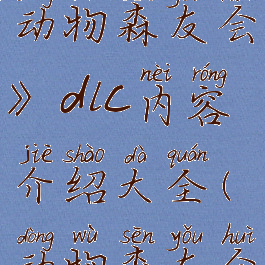 动物森友会
nèi róng
》dlc内容
jiè shào dà quán
介绍大全(
dòng wù sēn yǒu huì
动物森友会